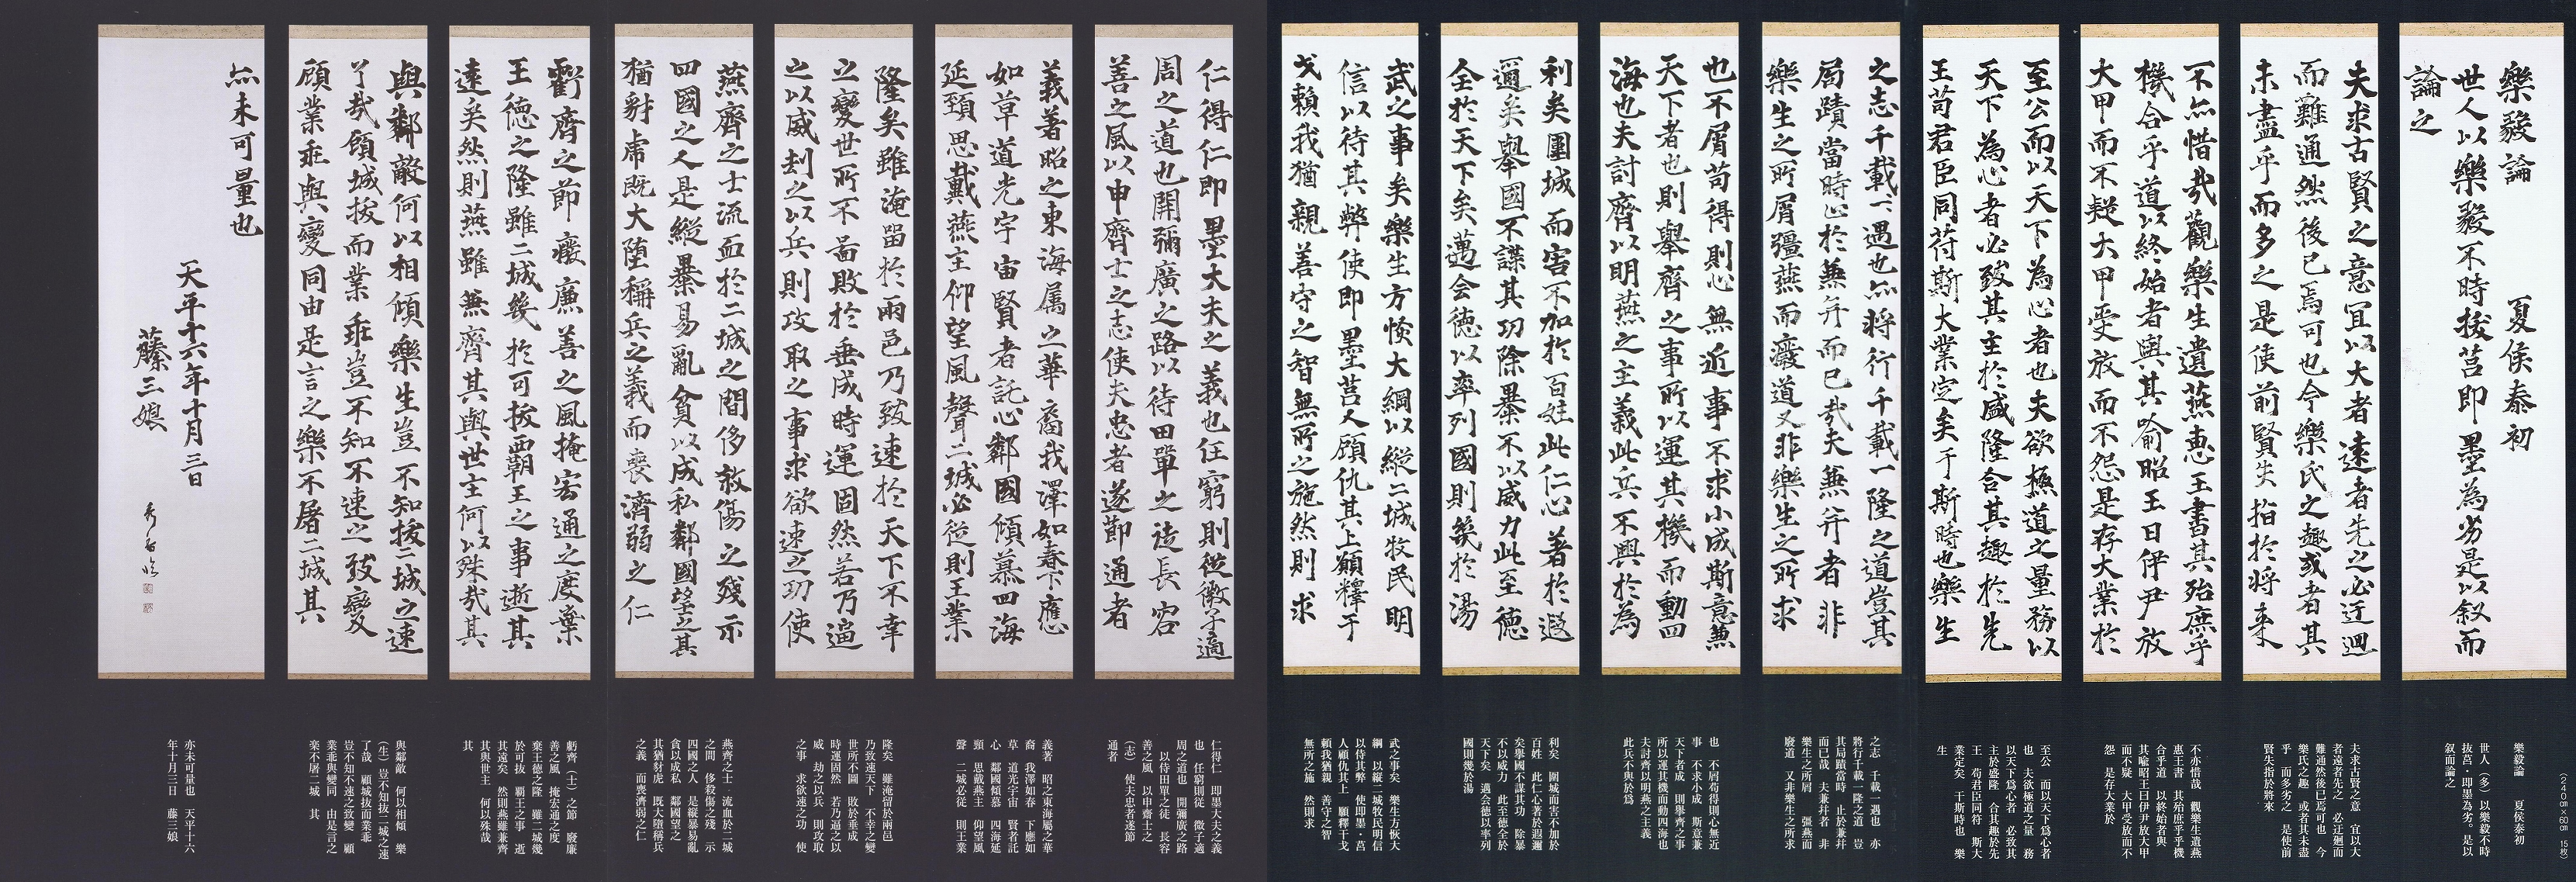 樂毅論　夏侯泰初
世人以樂毅不時拔莒即墨為劣是以叙而
論之
夫求古賢之意宜以大者遠者先之必迂迴
而難通然後已焉可也今樂氏之趣或者其
未盡乎而多之是使前賢失指於将来
不亦惜哉觀樂生遺燕惠王書其殆庶乎
機合乎道以終始者與其喻昭王曰伊尹放
大甲而不疑大甲受放而不怨是存大業於
至公而以天下為心者也夫欲極道之量務以
天下為心者必致其主於盛隆合其趣於先
王苟君臣同符斯大業定矣于斯時也樂生
之志千載一遇也亦将行千載一隆之道豈其
局蹟當時止於兼并而已哉夫兼并者非
樂生之所屑彊燕而廢道又非樂生之所求
也不屑苟得則心無近事不求小成斯意兼
天下者也則舉齊之事所以運其機而動四
海也夫討齊以明燕之主義此兵不興於為
利矣圍城而害不加於百姓此仁心著於遐
邇矣舉國不謀其功除暴不以威力此至德
全於天下矣邁全德以率列國則幾於湯
武之事矣樂生方恢大綱以縱二城牧民明
信以待其弊使即墨莒人顧仇其上願釋干
戈賴我猶親善守之智無所之施然則求
仁得仁即墨大夫之義也任窮則從微子適
周之道也開彌廣之路以待田單之徒長容
善之風以申齊士之志使夫忠者遂節通者
義著昭之東海属之華裔我澤如春下應
如草道光宇宙賢者託心鄰國傾慕四海
延頸思戴燕主仰望風聲二城必從則王業
隆矣雖淹留於兩邑乃致速於天下不幸
之變世所不啚敗於垂成時運固然若乃逼
之以威刧之以兵則攻取之事求欲速之功使
燕齊之士流血於二城之間侈殺傷之殘示
四國之人是縱暴易亂貪以成私鄰國望之其
猶豺虎既大墮稱兵之義而喪濟弱之仁
虧齊之節廢廉善之風掩宏通之度棄
王德之隆雖二城幾於可拔覇王之事逝其
遠矣然則燕雖兼齊其與世主何以殊哉其
與鄰敵何以相傾樂生豈不知拔二城之速
了哉顧城拔而業乖豈不知不速之致變
顧業乖與變同由是言之樂不屠二城其
亦未可量也
天平十六年十月三日
藤三娘
樂毅論　夏侯泰初
世人（多）以樂毅不時
拔莒・即墨為劣。是以
叙而論之
夫求古賢之意　宜以大
者遠者先之　必迂迴而
難通然後已焉可也　今
樂氏之趣　或者其未盡
乎　而多劣之　是使前
賢失指於將來
不亦惜哉　觀樂生遺燕
惠王書　其殆庶乎乎機
合乎道　以終始者與
其喩昭王曰伊尹放大甲
而不疑　大甲受放而不
怨　是存大業於
至公　而以天下爲心者
也　夫欲極道之量　務
以天下爲心者　必致其
主於盛隆　合其趣於先
王　苟君臣同符　斯大
業定矣　于斯時也　樂
生
之志　千載一遇也　亦
將行千載一隆之道　豈
其局蹟當時　止於兼幷
而已哉　夫兼幷者　非
樂生之所屑　彊燕而
廢道　又非樂生之所求
也　不屑苟得則心無近
事　不求小成　斯意兼
天下者成　則擧齊之事
所以運其機而動四海也
夫討齊以明燕之主義
此兵不興於爲
利矣　圍城而害不加於
百姓　此仁心著於遐邇
矣擧國不謀其功　除暴
不以威力　此至德全於
天下矣　邁全德以率列
國則幾於湯
武之事矣　樂生方恢大
綱　以縱二城牧民明信
以侍其弊　使即墨・莒
人顧仇其上　願釋干戈
賴我猶親　善守之智
無所之施　然則求
仁得仁　即墨大夫之義
也　任窮則從　微子適
周之道也　開彌廣之路
以侍田單之徒　長容
善之風　以申齊士之
（志）使夫忠者遂節
通者
義著　昭之東海屬之華
裔　我澤如春　下應如
草　道光宇宙　賢者託
心　鄰國傾慕　四海延
頸　思戴燕主　仰望風
聲　二城必從　則王業
隆矣　雖淹留於兩邑
乃致速天下　不幸之變
世所不圖　敗於垂成
時運固然　若乃逼之以
威　劫之以兵　則攻取
之事　求欲速之功　使
燕齊之士・流血於二城
之間　侈殺傷之殘　示
四國之人　是縱暴易亂
貪以成私　鄰國望之
其猶豺虎　既大墮稱兵
之義　而喪濟弱之仁
虧齊（士）之節　廢廉
善之風　掩宏通之度
棄王德之隆　雖二城幾
於可拔　覇王之事　逝
其遠矣　然則燕雖兼齊
其與世主　何以殊哉
其
與鄰敵　何以相傾　樂
（生）豈不知拔二城之速
了哉　顧城拔而業乖
豈不知不速之致變　顧
業乖與變同　由是言之
楽不屠二城　其
亦未可量也　天平十六
年十月三日　藤三娘
（240㎝×60㎝　15枚）